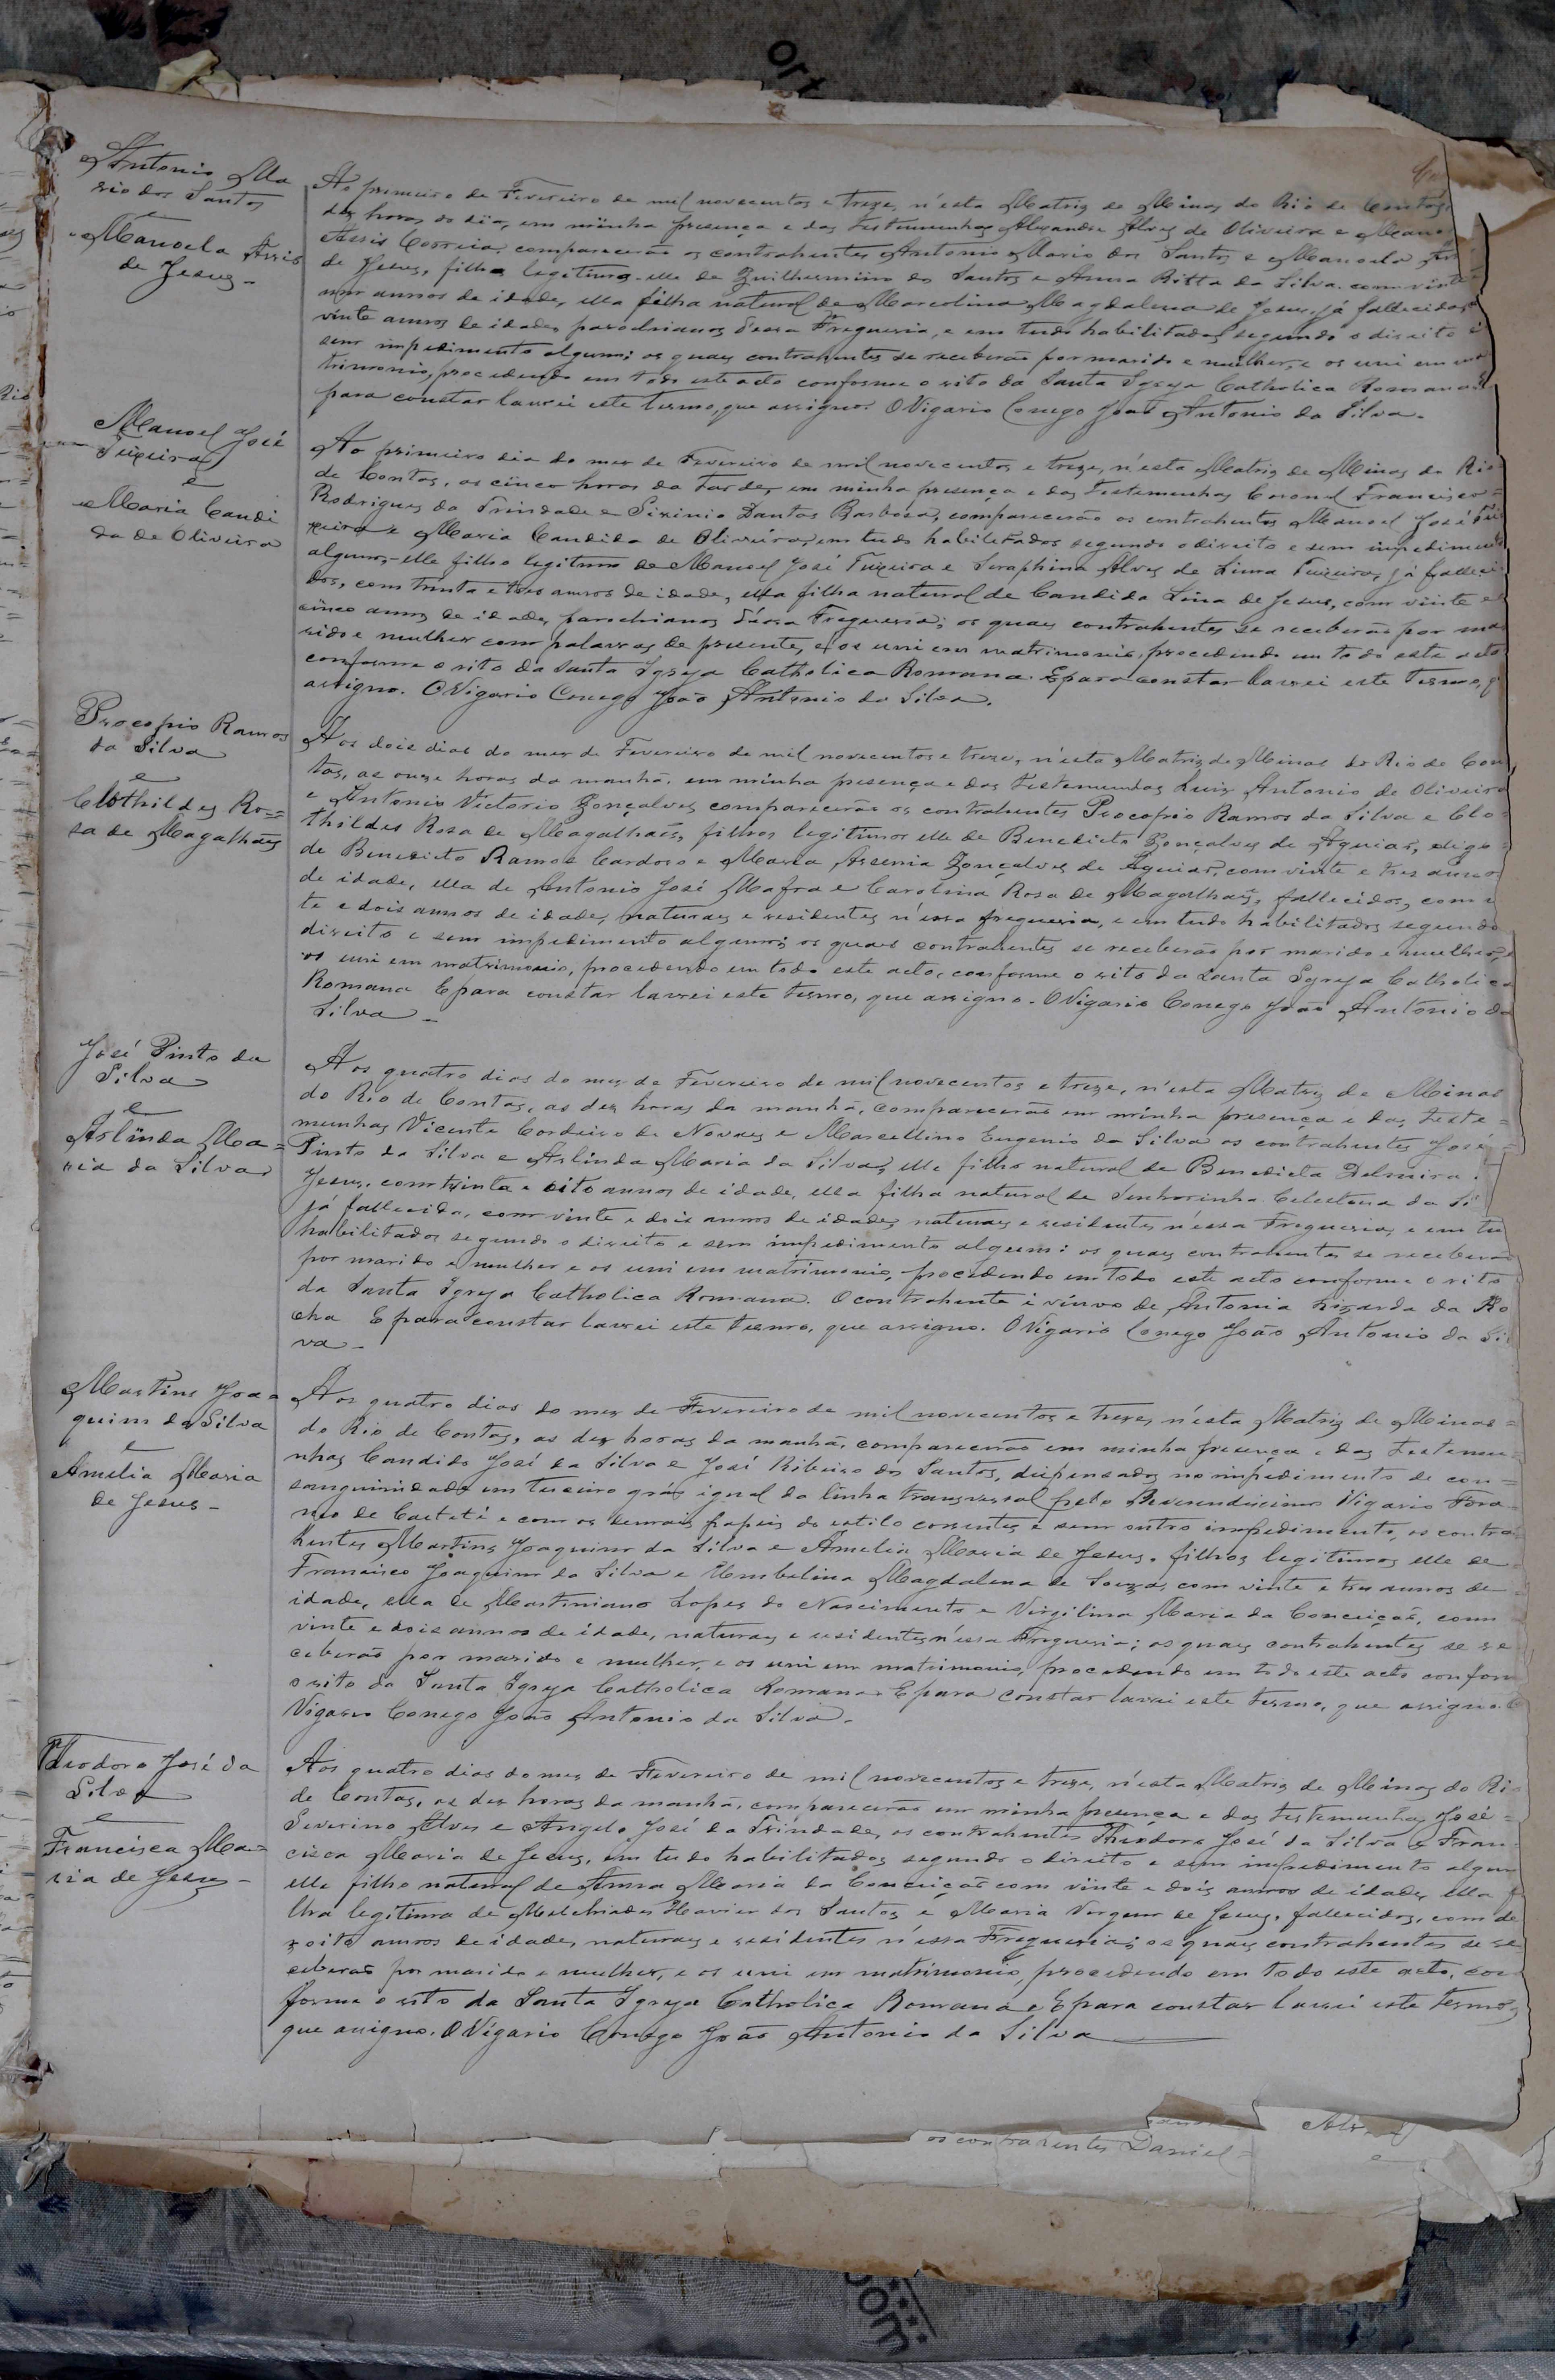 Antonio Ma
rio dos Santos
e
Manoela Assis
de Jesus -
Ao primeiro de Fevereiro de mil novecentos e treze, n'esta Matriz de Minas do Rio de Contas,
dez horas do dia, em minha presença e das testemunhas Alexandre Alves de Oliveira e Mano
Assis Correia, comparecerão os contrahentes Antonio Mario dos Santos e Manoela Ass
de Jesus, filhos legitimos elle de Guilhermino dos Santos e Anna Ritta da Silva, com vinte
um annos de idade, ella filha natural de Marcolina Magdalena de Jesus, já fallecida,
vinte annos de idade, parochianos d'essa Freguesia, e em tudo habilitados segundo o direito e
sem impedimento algum; os quaes contrahentes se receberão por marido e mulher, e os uni em ma
trimonio, procedendo em todo este acto conforme o rito da Santa Igreja Catholica Romana. E
para constar lavrei este termo, que assigno. O Vigario Conego João Antonio da Silva.
Manoel José
Teixeira
e
Maria Candi
da de Oliveira
Ao primeiro dia do mez de Fevereiro de mil novecentos e treze, n'esta Matriz de Minas do Rio
de Contas, as cinco horas da tarde, em minha presença e das testemunhas Coronel Francisco
Rodrigues da Trindade e Sizinio Dantas Barbosa, comparecerão os contrahentes Manoel José Tei
xeira e Maria Candida de Oliveira, em tudo habilitados segundo o direito e sem impedimento
algum, elle filho legitimo de Manoel José Teixeira e Seraphina Alves de Lima Teixeira, já falleci
dos, com trinta e tres annos de idade, ella filha natural de Candida Lina de Jesus, com vinte e
cinco annos de idade, parochianos d'essa Freguesia; os quaes contrahentes se receberão por ma
rido e mulher com palavras de presente, e os uni em matrimonio, procedendo em todo este acto
conforme o rito da Santa Igreja Catholica Romana. E para constar lavrei este termo, q
assigno. O Vigario Conego João Antonio da Silva.
Procopio Ramos
da Silva
e
Clothildes Ro=
sa de Magalhães
Aos dois dias do mez de Fevereiro de mil novecentos e treze, n'esta Matriz de Minas do Rio de Con
tas, as onze horas da manhã, em minha presença e das testemunhas Luiz Antonio de Oliveira
e Antonio Victorio Gonçalves comparecerão os contrahentes Procopio Ramos da Silva e Clo
thildes Rosa de Magalhães, filhos legitimos elle de Benedicto Gonçalves de Aguiar, digo
de Benedicto Ramos Cardoso e Maria Arsenia Gonçalves de Aguiar, com vinte e tres annos
de idade, ella de Antonio José Mafra e Carolina Rosa de Magalhães, fallecidos, com
te e dois annos de idade, naturaes e residentes n'essa freguesia, e em tudo habilitados segundo
direito e sem impedimento algum; os quaes contrahentes se receberão por marido e mulher, e
os uni em matrimonio, procedendo em todo este acto, conforme o rito da Santa Igreja Catholica
Romana E para constar lavrei este termo, que assigno. O Vigario Conego João Antonio da
Silva -
José Pinto da
Silva
e
Arlinda Ma=
ria da Silva
Aos quatro dias do mez de Fevereiro de mil novecentos e treze, n'esta Matriz de Minas
do Rio de Contas, as dez horas da manhã, comparecerão em minha presença e das teste=
munhas Vicente Cordeiro de Novaes e Marcellino Eugenio da Silva os contrahentes José
Pinto da Silva e Arlinda Maria da Silva, elle filho natural de Benedicta Delmira
Jesus, com trinta e oito annos de idade, ella filha natural de Senhorinha Celestina da Si
já fallecida, com vinte e dois annos de idade, naturaes e residentes n'essa Freguesia, e em tu
habilitados segundo o direito e sem impedimento algum: os quaes contrahentes se receberão
por marido e mulher e os uni em matrimonio, procedendo em todo este acto conforme o rito
da Santa Igreja Catholica Romana. O contrahente é viuvo de Antonia Rizarda da Ro
cha E para constar lavrei este termo, que assigno. O Vigario Conego João Antonio da Sil
va -
Martins Joa=
quim da Silva
e
Amelia Maria
de Jesus -
Aos quatro dias do mez de Fevereiro de mil novecentos e treze, n'esta Matriz de Minas =
do Rio de Contas, as dez horas da manhã, comparecerão em minha presença e das testemu=
nhas Candido José da Silva e José Ribeiro dos Santos, dispensados no impedimento de con=
sanguinidade em terceiro gráo igual da linha transversal pelo Reverendissimo Vigario Fora
neo de Caeteté e com os demais papeis do estilo correntes e sem outro impedimento, os contra
hentes Martins Joaquim da Silva e Amelia Maria de Jesus, filhos legitimos elle de
Francisco Joaquim da Silva e Umbelina Magdalena de Souza, com vinte e tres annos de
idade, ella de Martiniano Lopes do Nascimento e Virgilina Maria da Conceição, com
vinte e dois annos de idade, naturaes e residentes n'essa Freguesia; os quaes contrahentes se re
ceberão por marido e mulher, e os uni em matrimonio, procedendo em todo este acto conform
o rito da Santa Igreja Catholica Romana. E para constar lavrei este termo, que assigno. O
Vigario Conego João Antonio da Silva.
Theodoro José da
Silva
e
Francisca Ma=
ria de Jesus -
Aos quatro dias do mez de Fevereiro de mil novecentos e treze, n'esta Matriz de Minas do Rio
de Contas, as dez horas da manhã, comparecerão em minha presença e das testemunhas José =
Severino Alves e Angelo José da Trindade, os contrahentes Theodoro José da Silva e Fran
cisca Maria de Jesus, em tudo habilitados segundo o direito e sem impedimento algum
elle filho natural de Anna Maria da Conceição com vinte e dois annos de idade, ella fi
lha legitima de Melchiades Xavier dos Santos e Maria Vergem de Jesus, fallecidos, com de
zoito annos de idade, naturaes e residentes n'essa Freguesia; os quaes contrahentes se re
ceberão por marido e mulher, e os uni em matrimonio, procedendo em todo este acto, con
forme o rito da Santa Igreja Catholica Romana. E para constar lavrei este termo,
que assigno. O Vigario Conego João Antonio da Silva
os contrahentes Daniel =